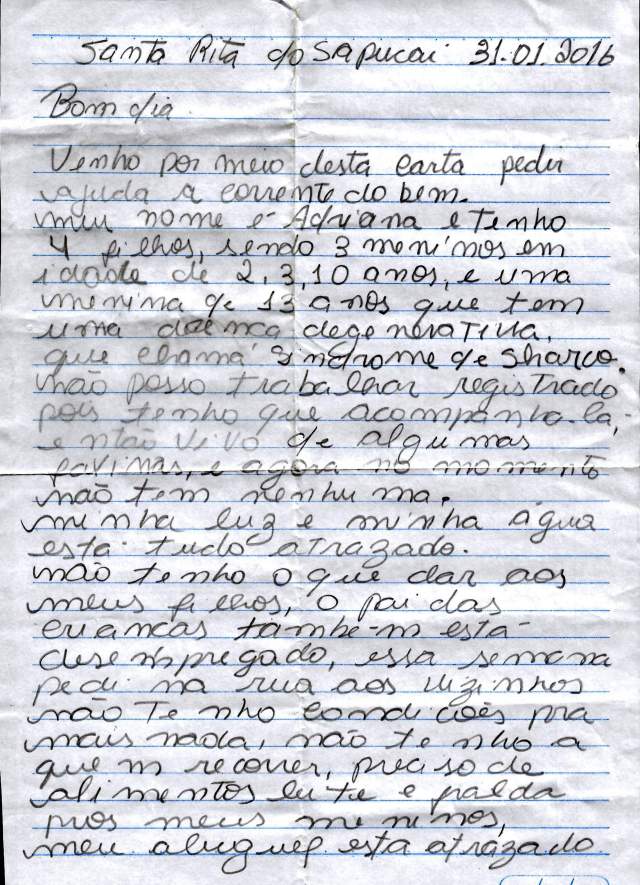 Santa Rita do Sapucai 31.01.2016
Bom dia
Venho por meio desta carta pedir
ajuda a corrente do bem.
meu nome e Adriana e tenho
4 filhos, sendo 3 meninos em
idade de 2, 3, 10 anos, e uma
menina de 13 anos que tem
uma doença degenerativa,
que chama Sindrome de Sharco.
não posso trabalhar registrado
pois tenho que acompanha-la,
então vivo de algumas
faxinas, e agora no momento
não tem nenhuma.
minha luz e minha água
esta tudo atrazado.
não tenho o que dar aos
meus filhos, o pai das
criancas tambem está
desempregado, essa semana
pedi na rua aos vizinhos
não tenho condicões pra
mais nada, não tenho a
quem recorrer, preciso de
alimentos leite e fralda
pros meus meninos,
meu aluguel esta atrazado.